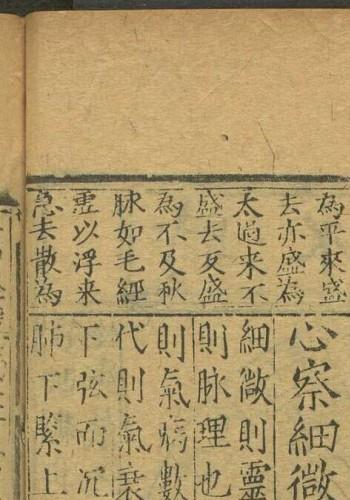 為平來盛
去亦盛為
太過來不
盛去反盛
為不及秋
脉如毛經
虛以浮來
急去散為
心察細微
細微則靈
則脉理也
則氣病數
代則氣衰
下弦而沉
肺下緊上